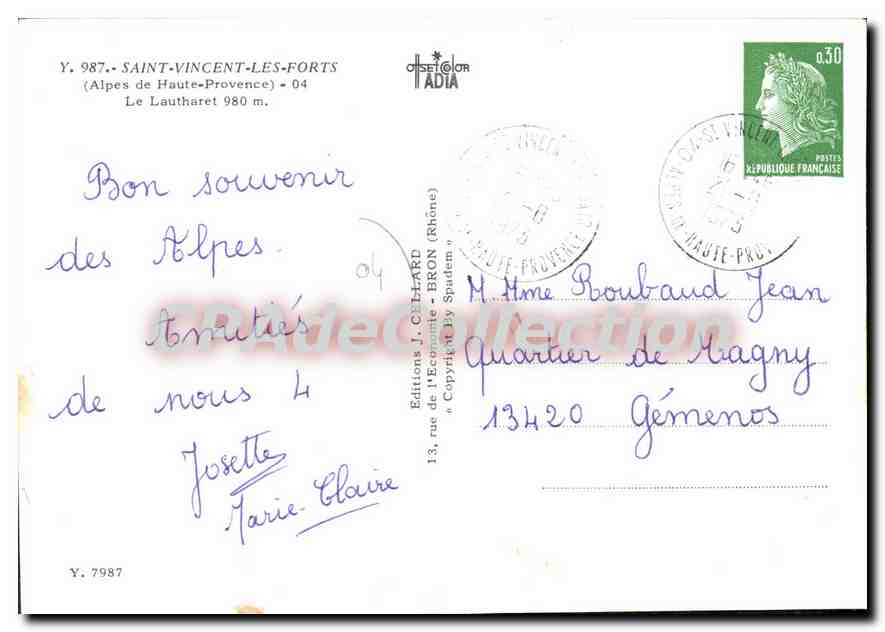 Y. 987.- SAINT-VINCENT-LES-FORTS
(Alpes de Haute-Provence) - 04
Le Lautharet 980 m.
OFFSETCOLOR
IADIA
0,30
POSTES
RÉPUBLIQUE FRANÇAISE
04-ST VINCENT
ALPES DE-HAUTE-PROV
Bon souvenir
des Alpes.
Amitiés
de nous 4
Josette
Marie-Claire
04
Editions J. CELLARD
13, rue de l'Economie - BRON (Rhône)
« Copyright By Spadem »
ST VINCEN
HAUTE-PROVENCE
M. Mme Roubaud Jean
Quartier de Magny
13420 Gémenos
CPAdeCollection
Y. 7987